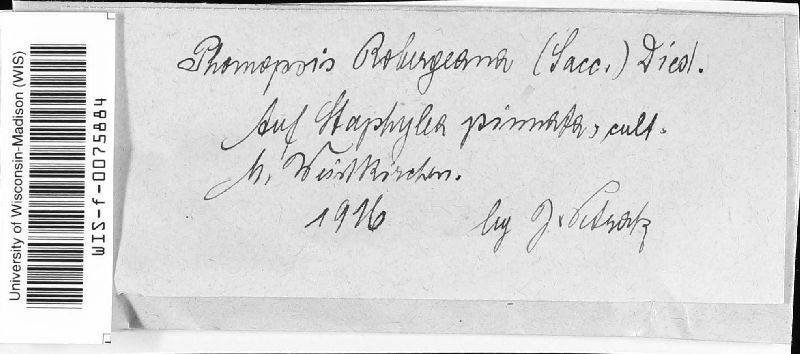 University of Wisconsin-Madison (WIS)
WIS-f-0075884
Phomopsis Robergeana (Sacc.) Died.
Auf Staphylea pinnata, cult.
M. Weisskirchen.
1916 leg J. Petrak